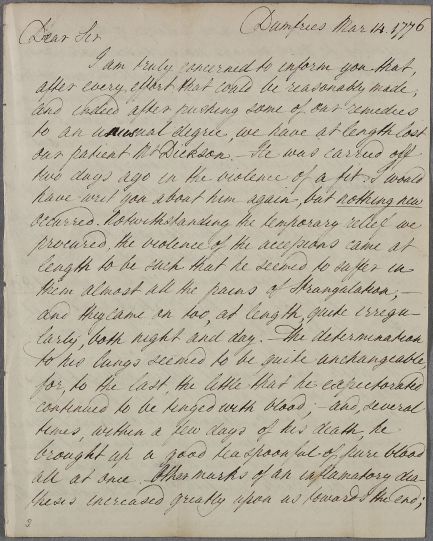 Dumfries Mar. 14. 1776
Dear Sir
I am truly concerned to inform you that,
after every effort that could be reasonably made,
and indeed after pushing some of our remedies
to an unusual degree, we have at length lost
our patient Mr Dickson. — He was carried off
two days ago in the violence of a fit. I would
have writ you about him again, but nothing new
occurred. Notwithstanding the temporary relief we
procured, the violence of the accessions came at
length to be such that he seemed to suffer in
them almost all the pains of strangulation; —
and they came on too, at length, quite irregu-
larly, both night and day. — The determination
to his lungs seemed to be quite unchangeable,
for, to the last, the little that he expectorated
continued to be tinged with blood; — and, several
times, within a few days of his death, he
brought up a good teaspoonful of pure blood
all at once. Other marks of an inflamatory dia-
thesis increased greatly upon us towards the end;
3